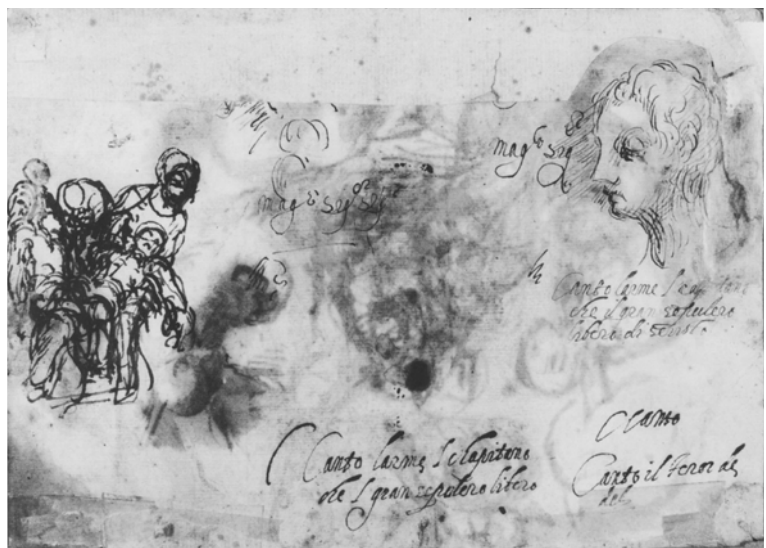 mag.co sig.r
mag.ci sig.ri sig.
Canto larme I cap
che il gran sepulcro
libero di
Canto larme I el capitano
che I gran sepulcro libero
Canto
Canto il feror de
del